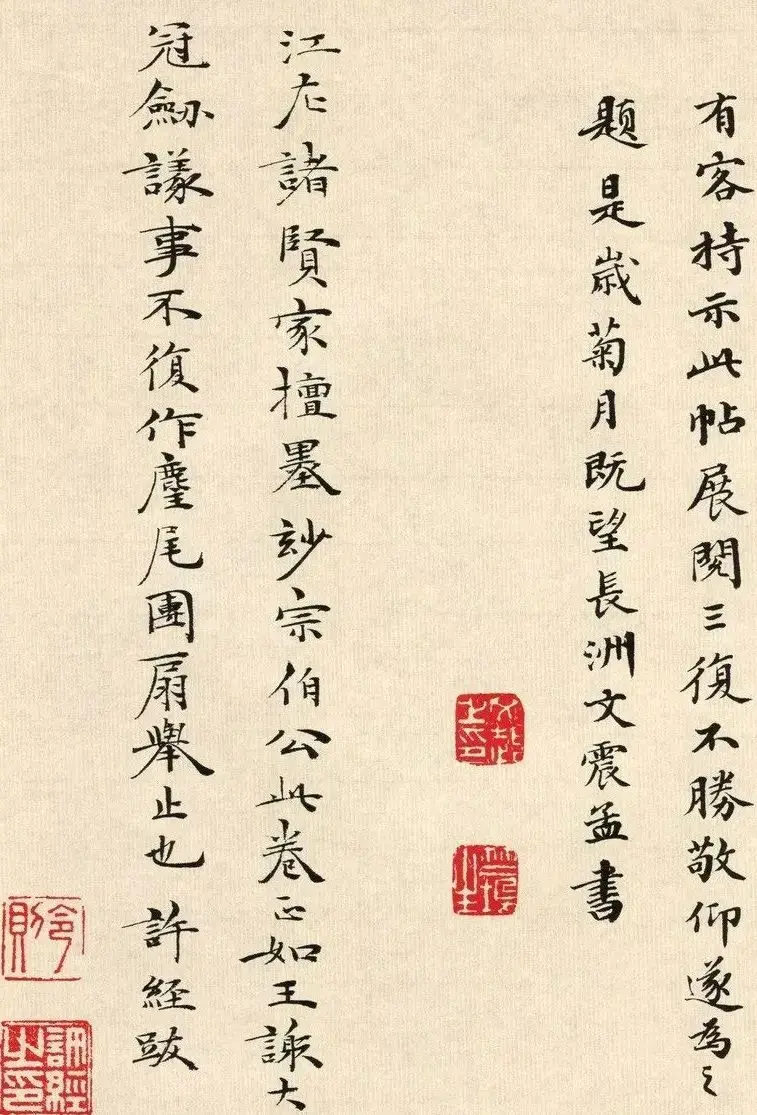 有客持示此帖展閱三復不勝敬仰遂為之
題是歲菊月既望長洲文震孟書
江左諸賢家擅墨玅宗伯公此卷正如王謝大
冠劔議事不復作麈尾團扇舉止也 許経跋
令則
許經之印